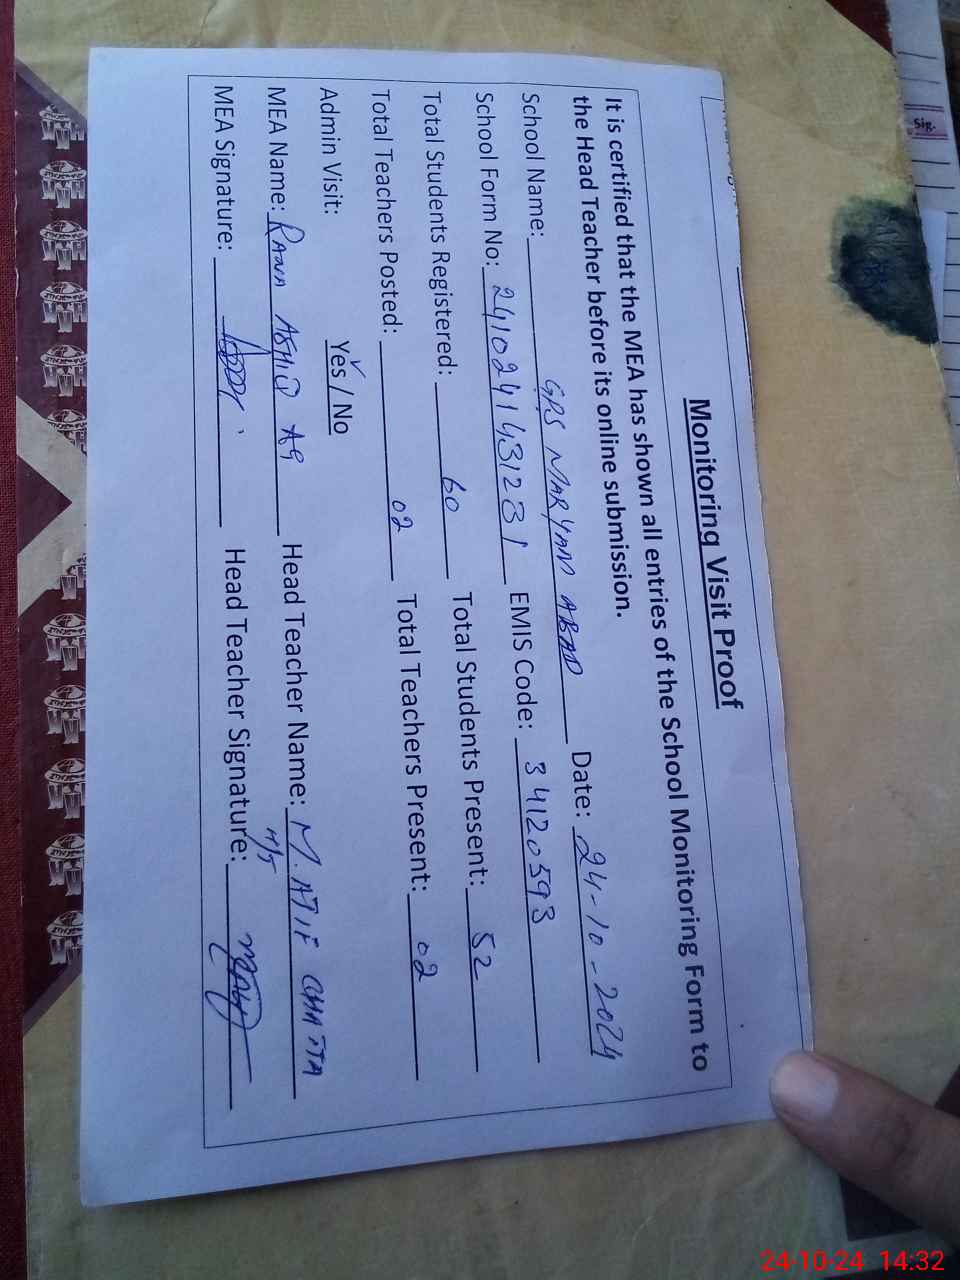 Monitoring Visit Proof
It is certified that the MEA has shown all entries of the School Monitoring Form to
the Head Teacher before its online submission.
School Name: GPS MARYAM ABAD Date: 24-10-2024
School Form No: 2410241431231 EMIS Code: 34120593
Total Students Registered: 60 Total Students Present: 52
Total Teachers Posted: 02 Total Teachers Present: 02
Admin Visit: Yes / No
MEA Name: RANA Head Teacher Name: M. ATIF CHATTA
MEA Signature: Head Teacher Signature:
Sig.
24-10-24 14:32